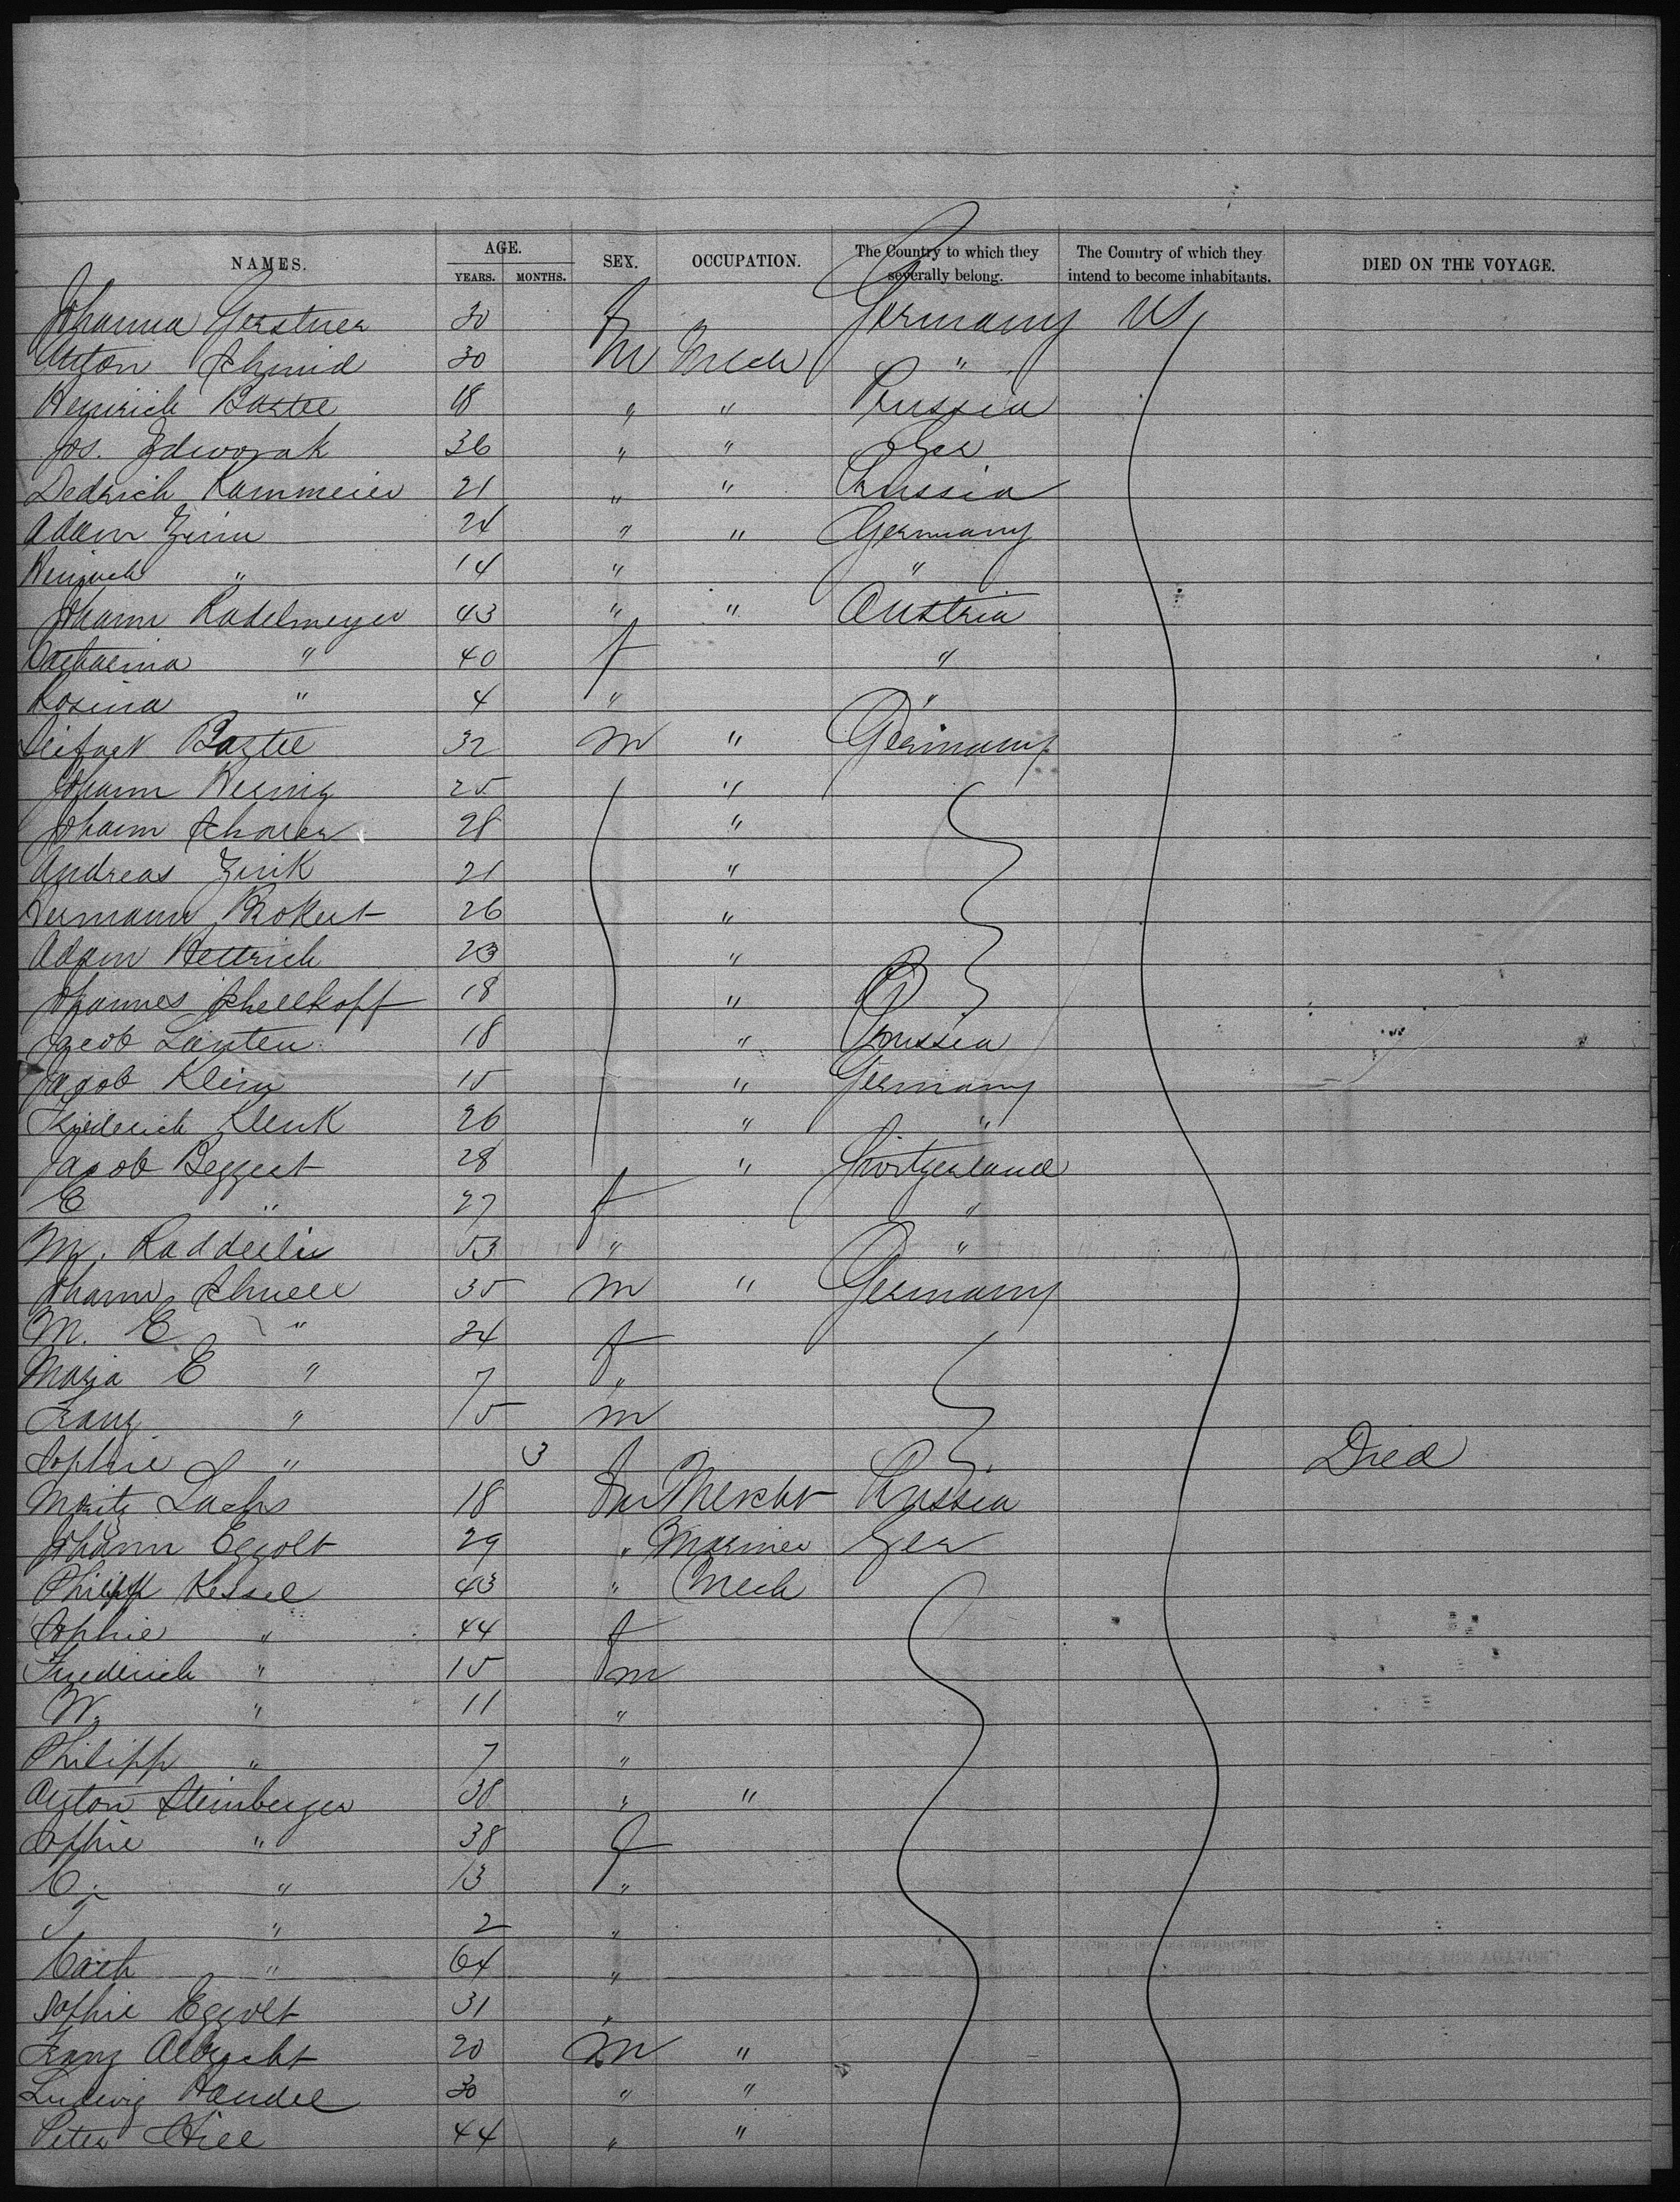 NAMES. AGE. SEX. OCCUPATION. The Country to which they severally belong. The Country of which they intend to become inhabitants. DIED ON THE VOYAGE.
YEARS. MONTHS.
Johanna Gerstner 30 f Germany US
Anton Schmid 30 M Mech "
Heinrich Bartel 18 " " Prussia
Jos. Zdworak 36 " " Ger
Dedrich Kammeier 21 " " Prussia
Adam Zinn 24 " " Germany
Heinrich " 14 " "
Johann Radelmeyer 43 " " Austria
Catharina " 40 f "
Rosina " 4 " "
Bartel 32 m " Germany
Johann Hering 25 "
Johann Scharer 28 "
Andreas Zink 21 "
Hermann Brokert 26 "
Adam Hettrich 23 "
Johannes Schellkopf 18 "
Jacob Lanten 18 " Prussia
Jacob Klein 15 " Germany
Friederich Klenk 26 " "
Jacob Beggert 28 " Switzerland
E " 27 f "
M. Raddeilin 53 " "
Johann Schnell 35 m " Germany
M. E " 24 f
Maria E " 7 "
Franz " 15 m
Sophie " 3 Died
Moritz Lachs 18 m Mercht Prussia
Johann Eggolt 29 " Mariner Ger
Philipp Kessel 43 " Mech
Sophie " 44 f
Friederich " 15 m
W. " 11 "
Philipp " 7 "
Anton Steinberger 38 " "
Sophie " 38 f
C. " 13 "
T " 2 "
Cath " 64 "
Sophie Eggolt 31 "
Franz Albrecht 20 M "
Ludwig Handel 30 " "
Peter Hill 44 " "